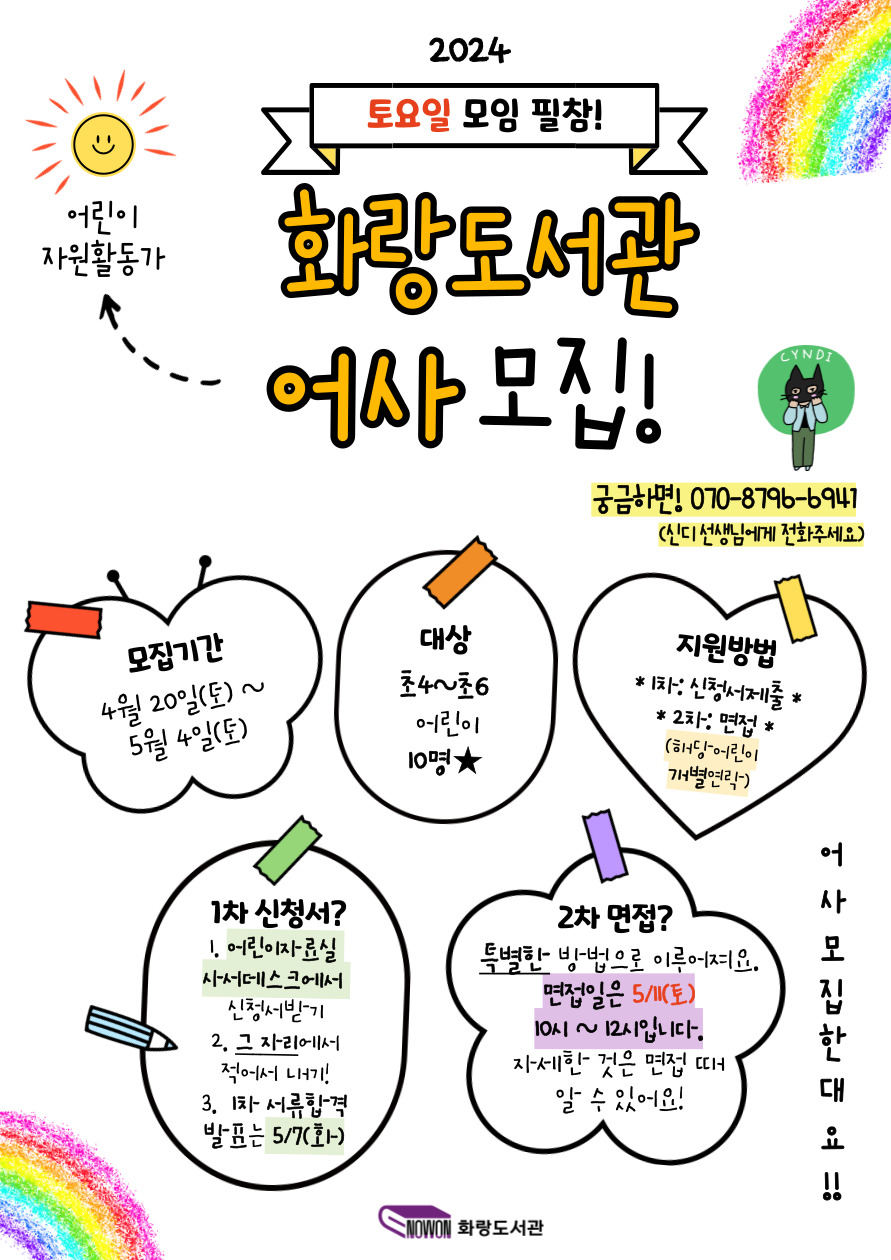 2024
토요일 모임 필참!
어린이
자원활동가
화랑도서관
어사 모집!
CYNDI
궁금하면! 070-8796-6941
(신디 선생님에게 전화주세요)
모집기간
4월 20일(토) ~
5월 4일(토)
대상
초4~초6
어린이
10명★
지원방법
* 1차: 신청서제출 *
* 2차: 면접 *
(해당 어린이
개별연락)
1차 신청서?
1. 어린이자료실
사서데스크에서
신청서받기
2. 그 자리에서
적어서 내기!
3. 1차 서류합격
발표는 5/7(화)
2차 면접?
특별한 방법으로 이루어져요.
면접일은 5/11(토)
10시 ~ 12시입니다.
자세한 것은 면접 때
알 수 있어요!
어
사
모
집
한
대
요
!!
NOWON 화랑도서관